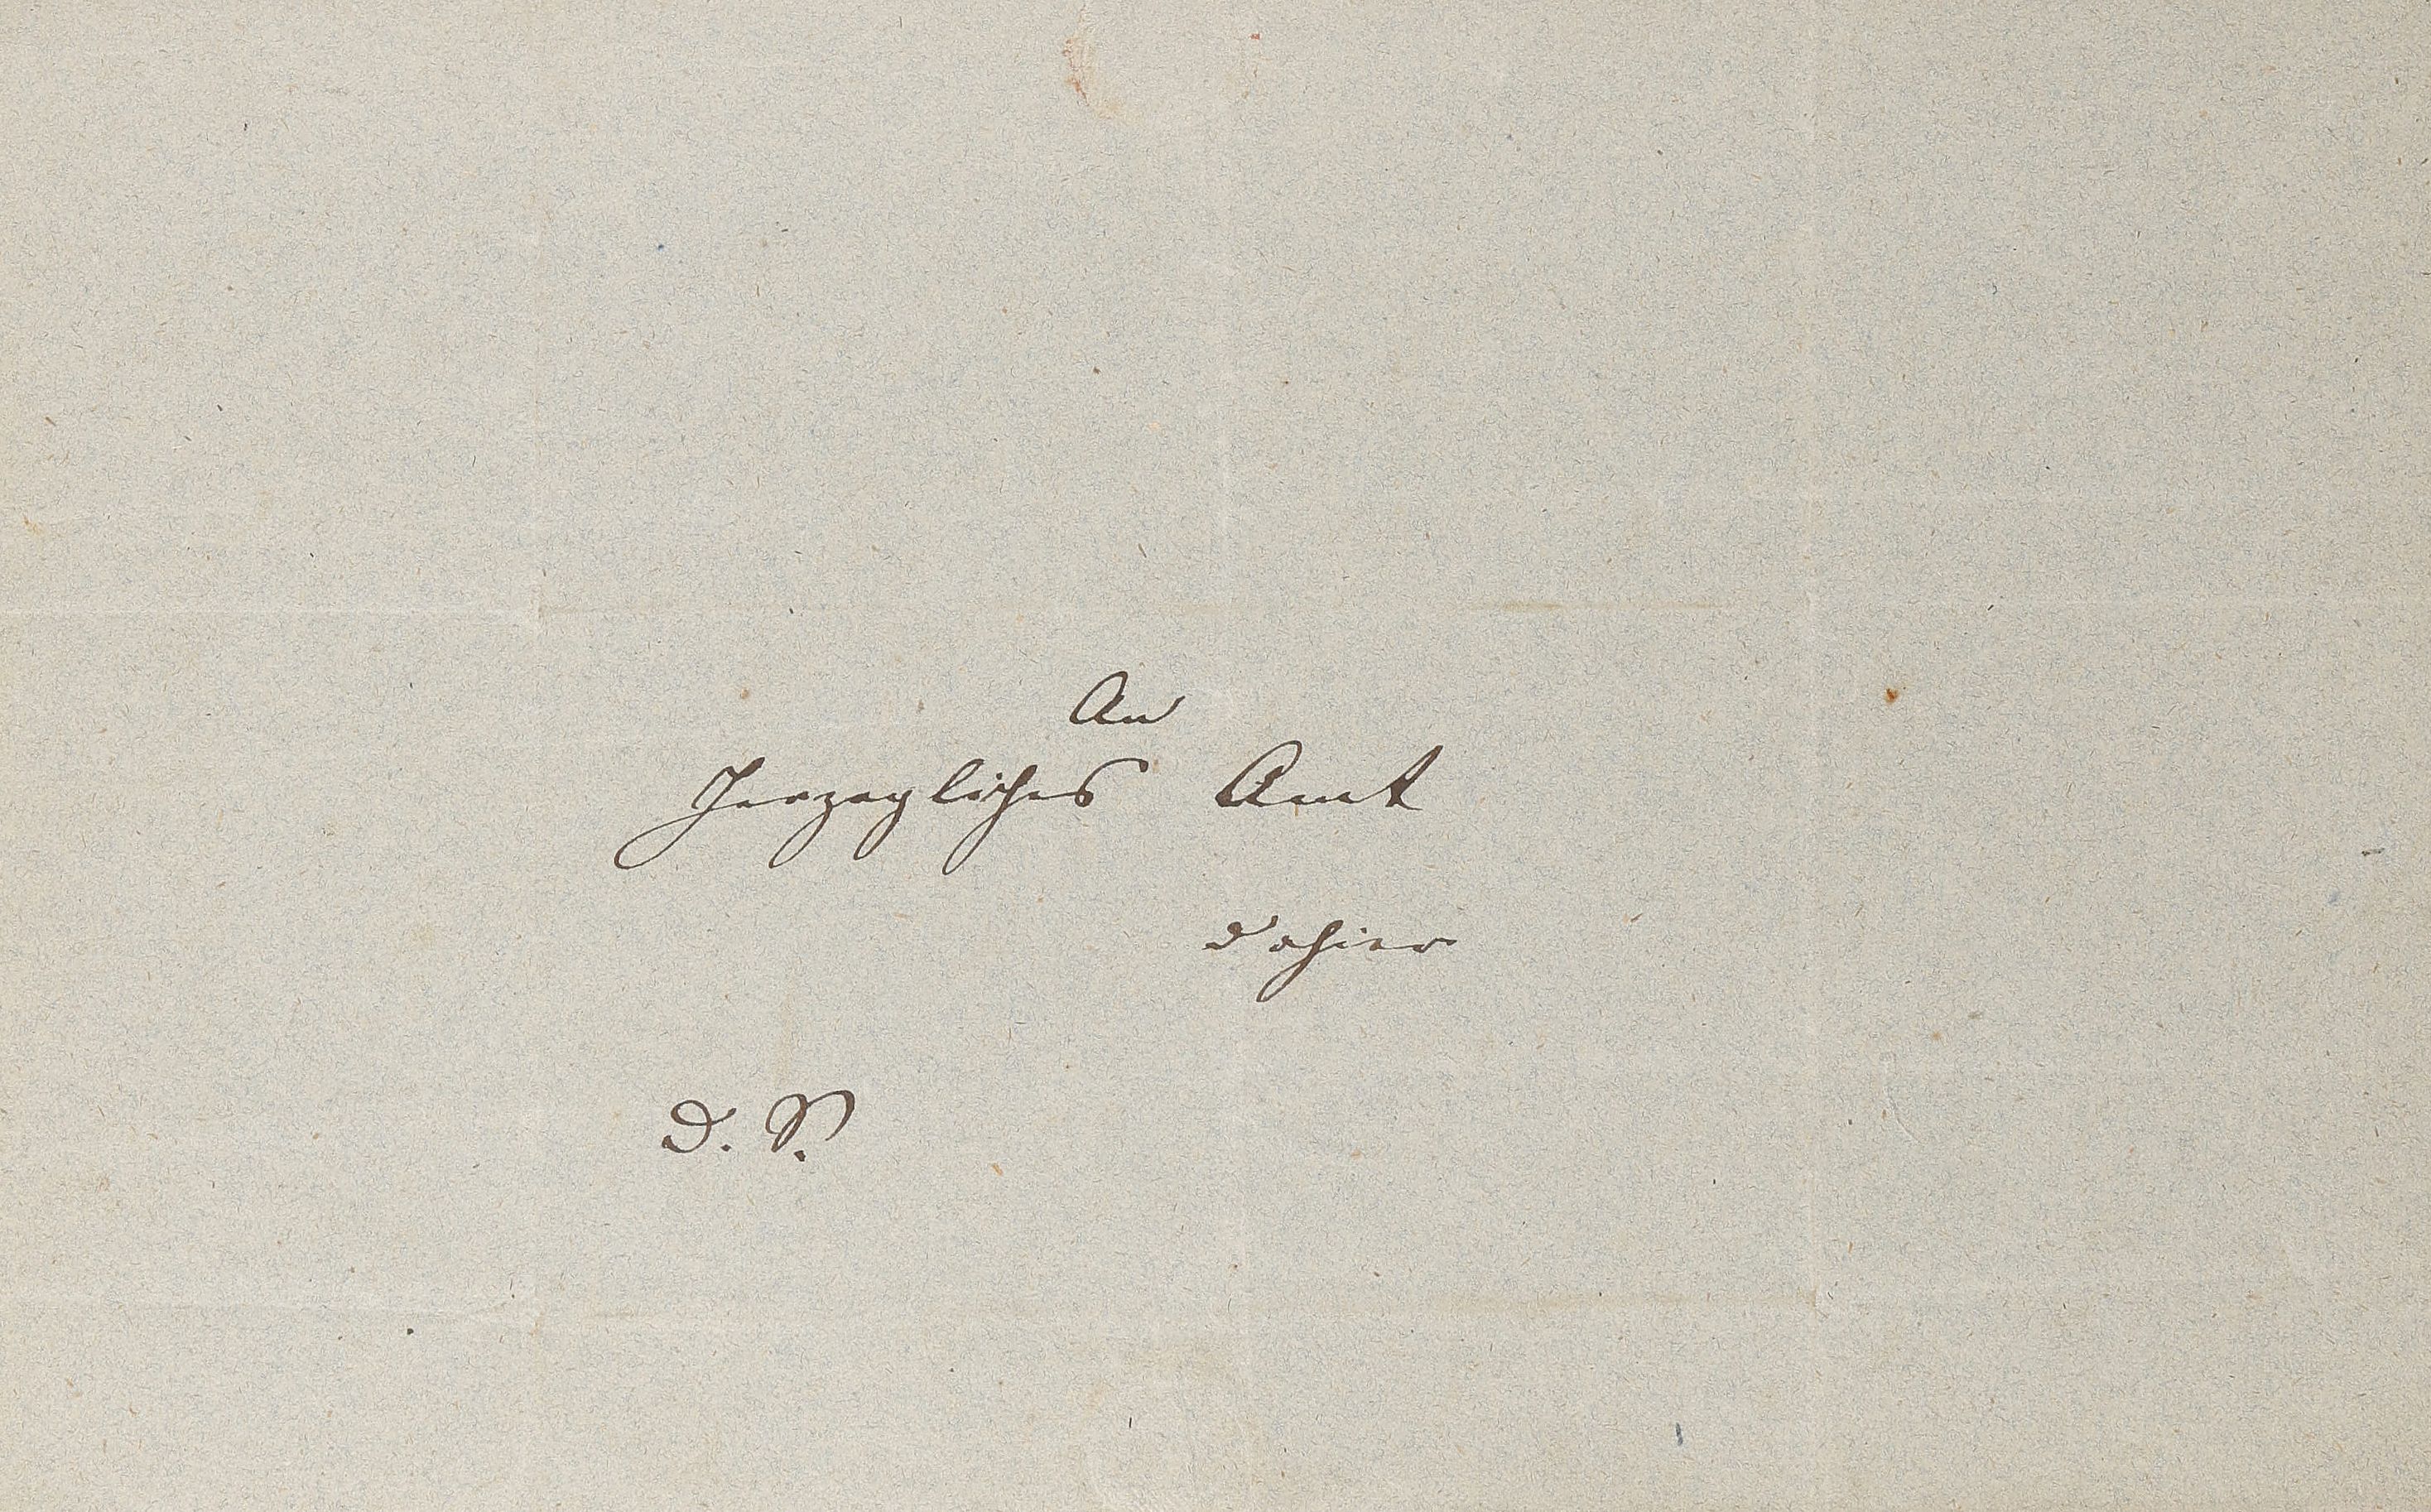 An
Herzogliches Amt
dahier
D. S.